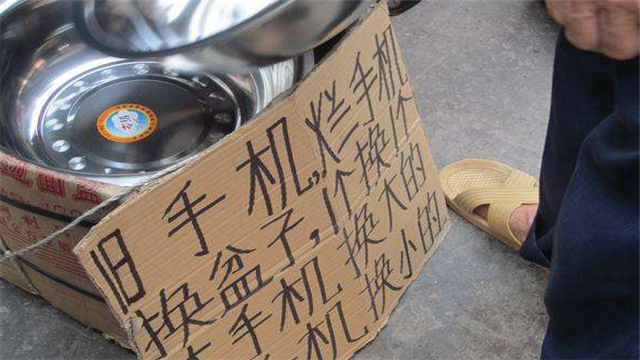 旧手机,烂手机
换盆子,1个换1个
手机换大的
手机换小的